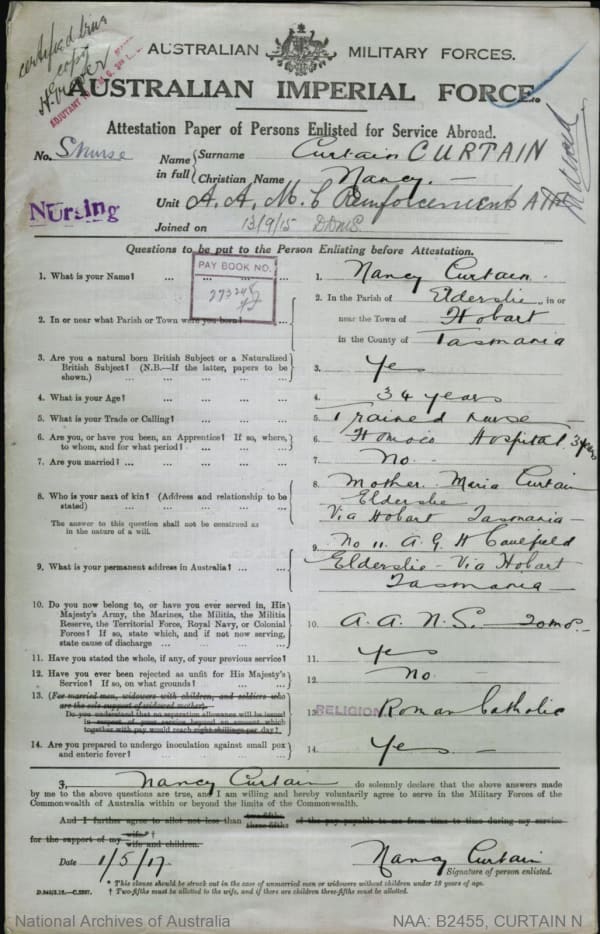 certified true
copy
AUSTRALIAN MILITARY FORCES.
AUSTRALIAN IMPERIAL FORCE.
Attestation Paper of Persons Enlisted for Service Abroad.
No. S Nurse
Name in full
Surname Curtain CURTAIN
Christian Name Nancy.
Unit A. A. M. C Reinforcements
Nursing
Joined on 13/9/15
Questions to be put to the Person Enlisting before Attestation.
PAY BOOK NO.
1. What is your Name? ... ... ... 1. Nancy Curtain.
2. In or near what Parish or Town were you born? ... 2. In the Parish of Elderslie, in or
near the Town of Hobart
in the County of Tasmania
3. Are you a natural born British Subject or a Naturalized
British Subject? (N.B.—If the latter, papers to be
shown.) ... ... ... ... 3. Yes
4. What is your Age? ... ... ... ... 4. 34 years
5. What is your Trade or Calling? ... ... ... 5. Trained nurse
6. Are you, or have you been, an Apprentice? If so, where,
to whom, and for what period? ... ... ... 6. Homoeo Hospital. 3 years
7. Are you married? ... ... ... ... 7. No.
8. Who is your next of kin? (Address and relationship to be
stated) ... ... ... ... 8. Mother. Maria Curtain
Elderslie
Via Hobart Tasmania
The answer to this question shall not be construed as
in the nature of a will.
9. What is your permanent address in Australia? ... ... 9. No 11. A. G. H Caulfield
Elderslie - Via Hobart
Tasmania
10. Do you now belong to, or have you ever served in, His
Majesty's Army, the Marines, the Militia, the Militia
Reserve, the Territorial Force, Royal Navy, or Colonial
Forces? If so, state which, and if not now serving,
state cause of discharge ... ... ... 10. A. A. N. S. — 20 mos.
11. Have you stated the whole, if any, of your previous service? 11. Yes
12. Have you ever been rejected as unfit for His Majesty's
Service? If so, on what grounds? ... ... 12. No
13. (For married men, widowers with children, and soldiers who
are the sole support of widowed mother).
Do you understand that no separation allowance will be issued
in respect of your service beyond an amount which
together with pay would reach eight shillings per day?
13. RELIGION Roman Catholic
14. Are you prepared to undergo inoculation against small pox
and enteric fever? ... ... ... ... 14. Yes
I, Nancy Curtain do solemnly declare that the above answers made
by me to the above questions are true, and I am willing and hereby voluntarily agree to serve in the Military Forces of the
Commonwealth of Australia within or beyond the limits of the Commonwealth.
And I further agree to allot not less than two-fifths three-fifths of the pay payable to me from time to time during my service
for the support of my wife* † wife and children.
Date 1/5/17 Nancy Curtain
Signature of person enlisted.
* This clause should be struck out in the case of unmarried men or widowers without children under 18 years of age.
† Two-fifths must be allotted to the wife, and if there are children three-fifths must be allotted.
National Archives of Australia NAA: B2455, CURTAIN N